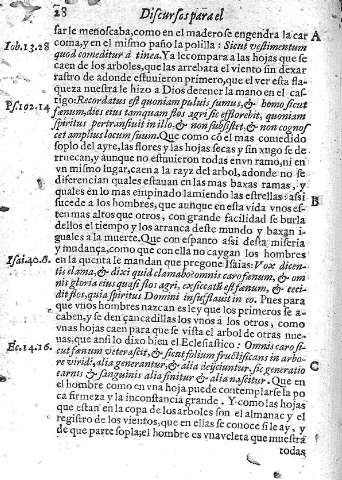 28 Discursos para el
far le menoscaba, como en el madero se engendra la car A
Iob. 13. 28 coma, y en el mismo paño la polilla: Sicut vestimentum
quod comeditur à tinea. Ya le compara a las hojas que se
caen de los arboles, que las arrebata el viento sin dexar
rastro de adonde estuuieron primero, que el ver esta fla-
queza nuestra le hizo a Dios detener la mano en el cas-
Ps. 102. 14 tigo: Recordatus est quoniam puluis sumus, & homo sicut
fœnum, dies eius tamquam flos agri sic efflorebit, quoniam
spiritus pertransiuit in illo, & non subsistet, & non cognos
cet amplius locum suum. Que como cō el mas comedido
soplo del ayre, las flores y las hojas secas y sin xugo se de
rruecan, y aunque no estuuieron todas en vn ramo, ni en
vn mismo lugar, caen a la rayz del arbol, adonde no se
diferencian quales estauan en las mas baxas ramas, y
quales en lo mas empinado lamiendo las estrellas: assi B
sucede a los hombres, que aunque en esta vida vnos es-
ten mas altos que otros, con grande facilidad se burla
dellos el tiempo y los arranca deste mundo y baxan i-
guales a la muerte. Que con espanto assi desta miseria
y mudança, como que con ella no caygan los hombres
Isai. 40. 6. en la quenta le mandan que pregone Isaias: Vox dicen-
tis clama, & dixi quid clamabo? omnis caro fœnum, & om
nis gloria eius quasi flos agri, exsiccatū est fœnum, & ceci-
dit flos, quia spiritus Domini insufflauit in eo. Pues para
que vnos hombres nazcan es ley que los primeros se a-
caben, y se den çancadillas los vnos à los otros, como
vnas hojas caen para que se vista el arbol de otras nue-
Ec. 14. 16. uas, que ansi lo dixo bien el Eclesiastico: Omnis caro si-
cut fœnum veterascit, & sicut folium fructificans in arbo-
re viridi, alia generantur, & alia deijciuntur, sic generatio C
carnis & sanguinis alia finitur & alia nascitur. Que en
el hombre como en vna hoja puede contemplarse la po
ca firmeza y la inconstancia grande. Y como las hojas
que estan en la copa de los arboles son el almanac y el
registro de los vientos, que en ellas se conoce si le ay, y
de que parte sopla; el hombre es vna veleta que muestra
todas